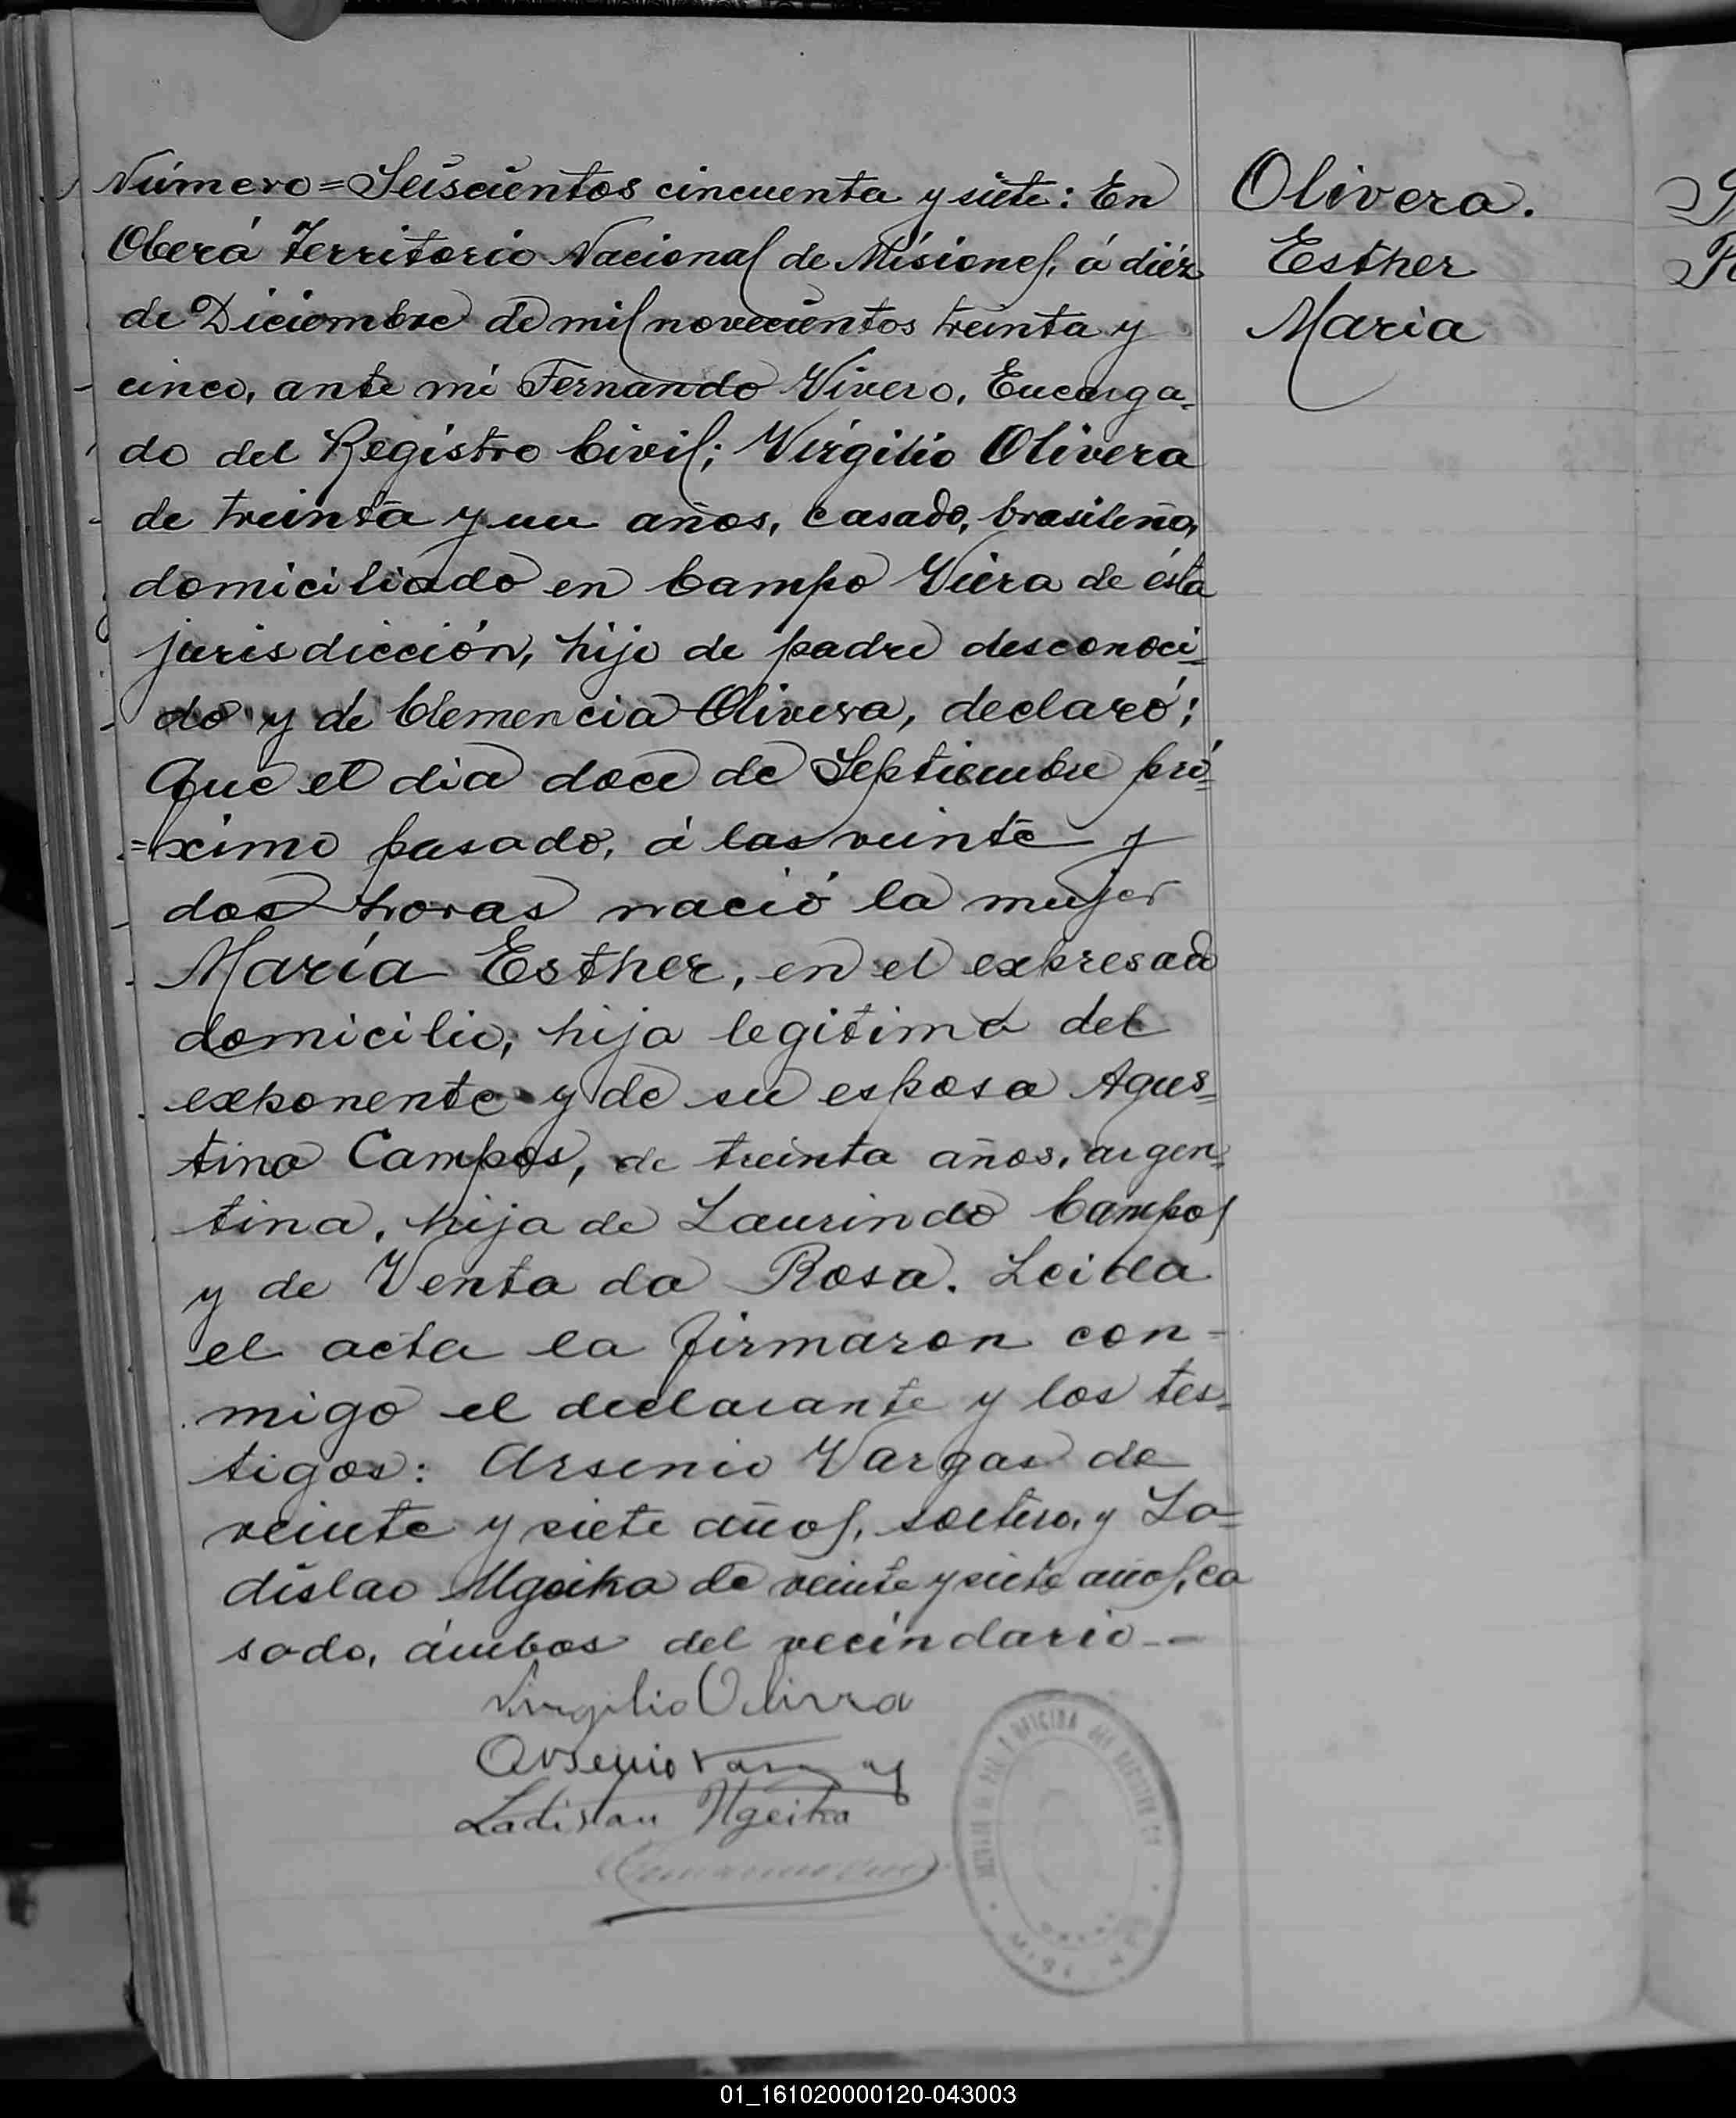 Número = Seiscientos cincuenta y siete: En
Oberá Territorio Nacional de Misiones, á diéz
de Diciembre de mil novecientos treinta y
cinco, ante mi Fernando Vivero, Encarga=
do del Registro Civil; Virgilio Olivera
de treinta y un años, casado, brasileño,
domiciliado en Campo Viera de ésta
jurisdicción, hijo de padre desconoci=
do y de Clemencia Olivera, declaró;
Que el dia doce de Septiembre pró=
=ximo pasado, á las veinte y
dos horas nació la mujer
María Esther, en el expresado
domicilio, hija legitima del
exponente y de su esposa Agus=
tina Campos, de treinta años, argen=
tina, hija de Laurindo Campos
y de Venta da Rosa. Leida
el acta la firmaron con-
migo el declarante y los tes=
tigos: Arsenio Vargas de
veinte y siete años, soltero, y La=
dislao Ugeika de veinte y siete años, ca
sado, ámbos del vecindario.-
Virgilio Olivera
Arsenio Vargas
Ladislau
Olivera.
Esther
Maria
01_161020000120-043003